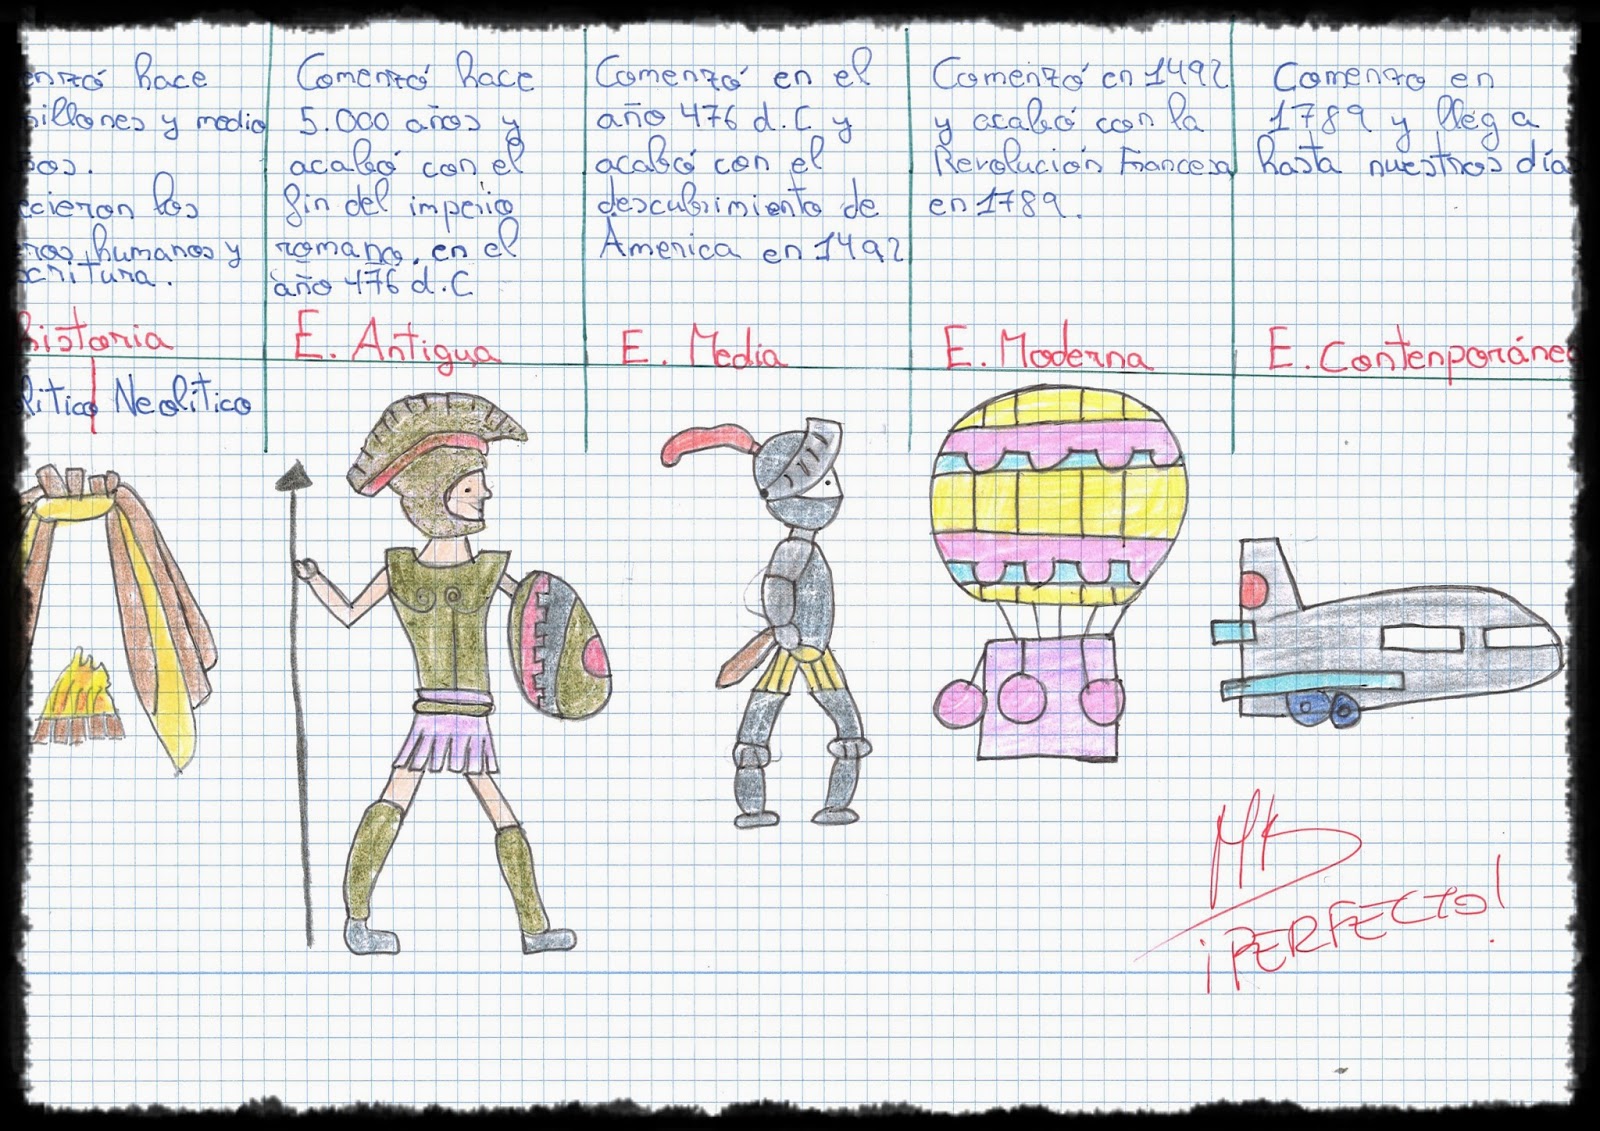 enzó hace
illones y medio
os.
cieron los
ros humanos y
critura.
Comenzó hace
5.000 años y
acabó con el
fin del imperio
romano, en el
año 476 d.C
Comenzó en el
año 476 d.C y
acabó con el
descubrimiento de
America en 1492
Comenzó en 1492
y acabó con la
Revolución Francesa
en 1789.
Comenzo en
1789 y llega
hasta nuestros día
historia
E. Antigua
E. Media
E. Moderna
E. Contenporáne
lítico Neolítico
¡PERFECTO!